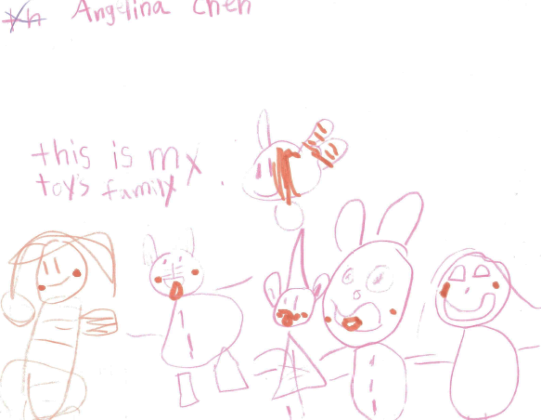 Angelina Chen
this is my
toy's family.